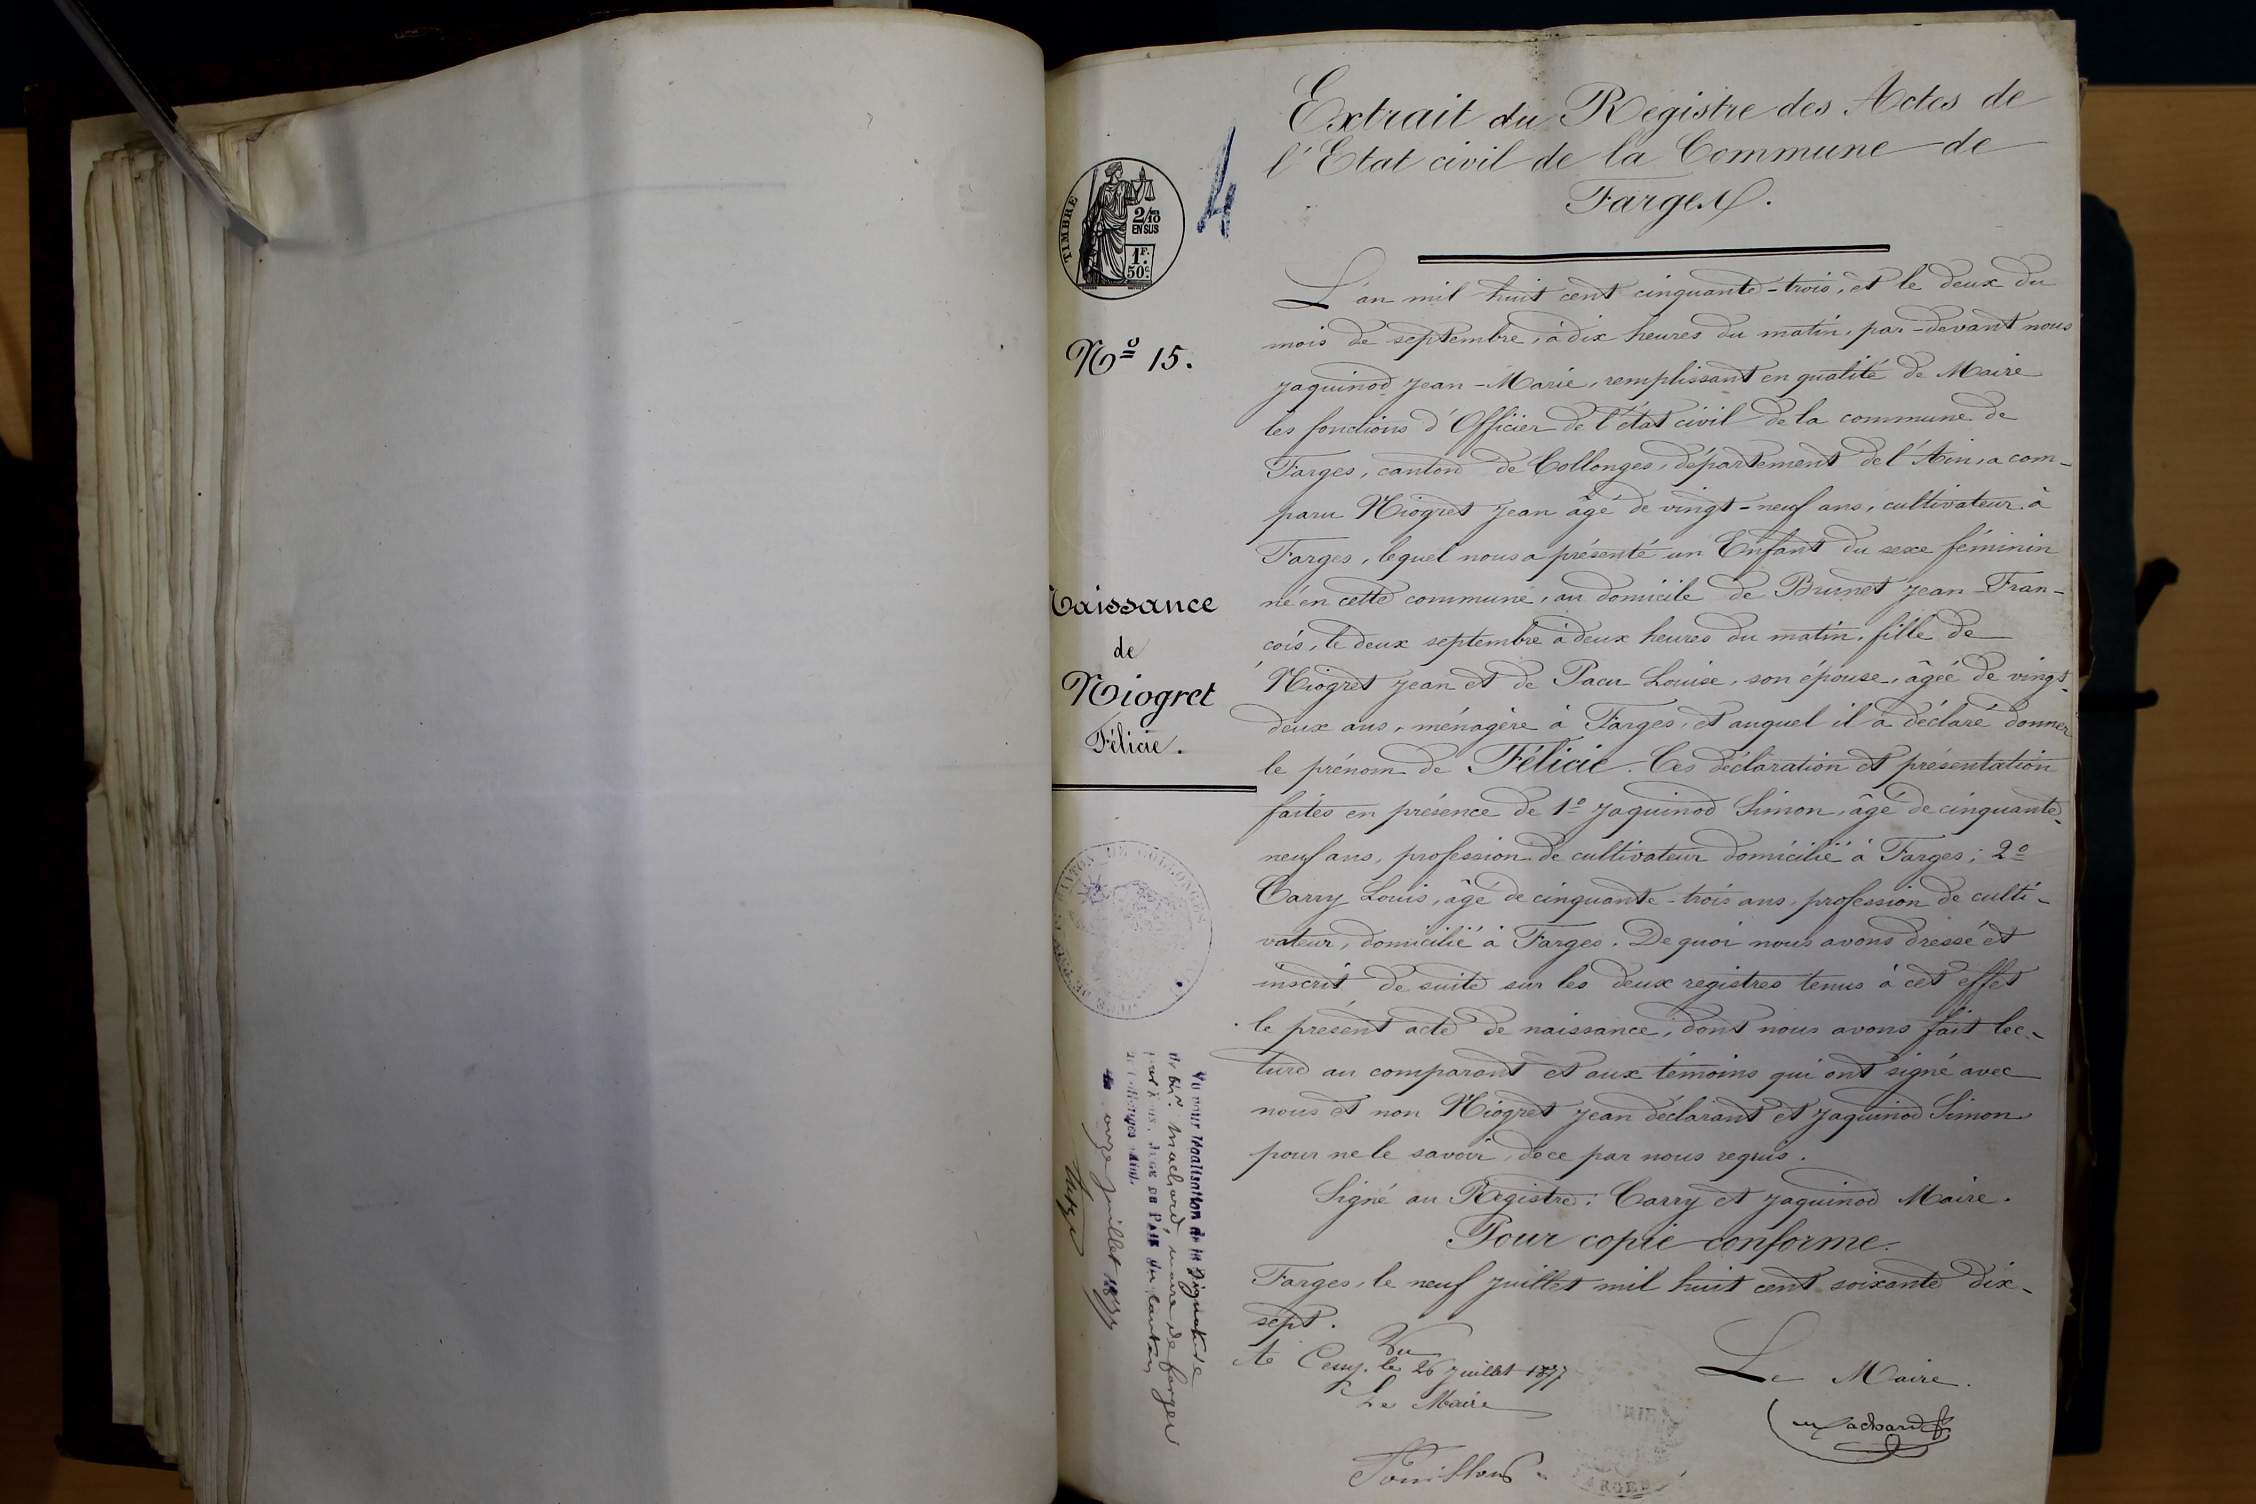 Extrait du Registre des Actes de
l'Etat civil de la Commune de
Farges.
4
TIMBRE
2/10
EN SUS
1F.
50c.
No 15.
Naissance
de
Niogret
Félicie.
L'an mil huit cent cinquante-trois, et le deux du
mois de septembre, à dix heures du matin, par-devant nous
Jaquinod Jean-Marie, remplissant en qualité de Maire
les fonctions d'Officier de l'état civil de la commune de
Farges, canton de Collonges, département de l'Ain, a com-
paru Niogret Jean âgé de vingt-neuf ans, cultivateur à
Farges, lequel nous a présenté un Enfant du sexe féminin
né en cette commune, au domicile de Brunet Jean-Fran-
cois, le deux septembre à deux heures du matin, fille de
Niogret Jean et de Pacu Louise, son épouse, âgée de vingt-
deux ans, ménagère à Farges, et auquel il a déclaré donner
le prénom de Félicie. Ces déclaration et présentation
faites en présence de 1o Jaquinod Simon, âgé de cinquante-
neuf ans, profession de cultivateur domicilié à Farges; 2o
Carry Louis, âgé de cinquante-trois ans, profession de culti-
vateur, domicilié à Farges. De quoi nous avons dressé et
inscrit de suite sur les deux registres tenus à cet effet
le présent acte de naissance, dont nous avons fait lec-
ture au comparant et aux témoins qui ont signé avec
nous et non Niogret Jean déclarant et Jaquinod Simon
pour ne le savoir, de ce par nous requis.
Signé au Registre: Carry et Jaquinod Maire.
Pour copie conforme.
Farges, le neuf Juillet mil huit cent soixante dix-
sept.
Vu
A Cessy, le 26 Juillet 1877
Le Maire
Le Maire.
Machard
CANTON DE COLLONGES
Vu pour légalisation de la signature
de Mr. Machard, maire de farges
par Nous, JUGE DE PAIX du canton
de Collonges (Ain).
Le onze Juillet 1877
FARGES